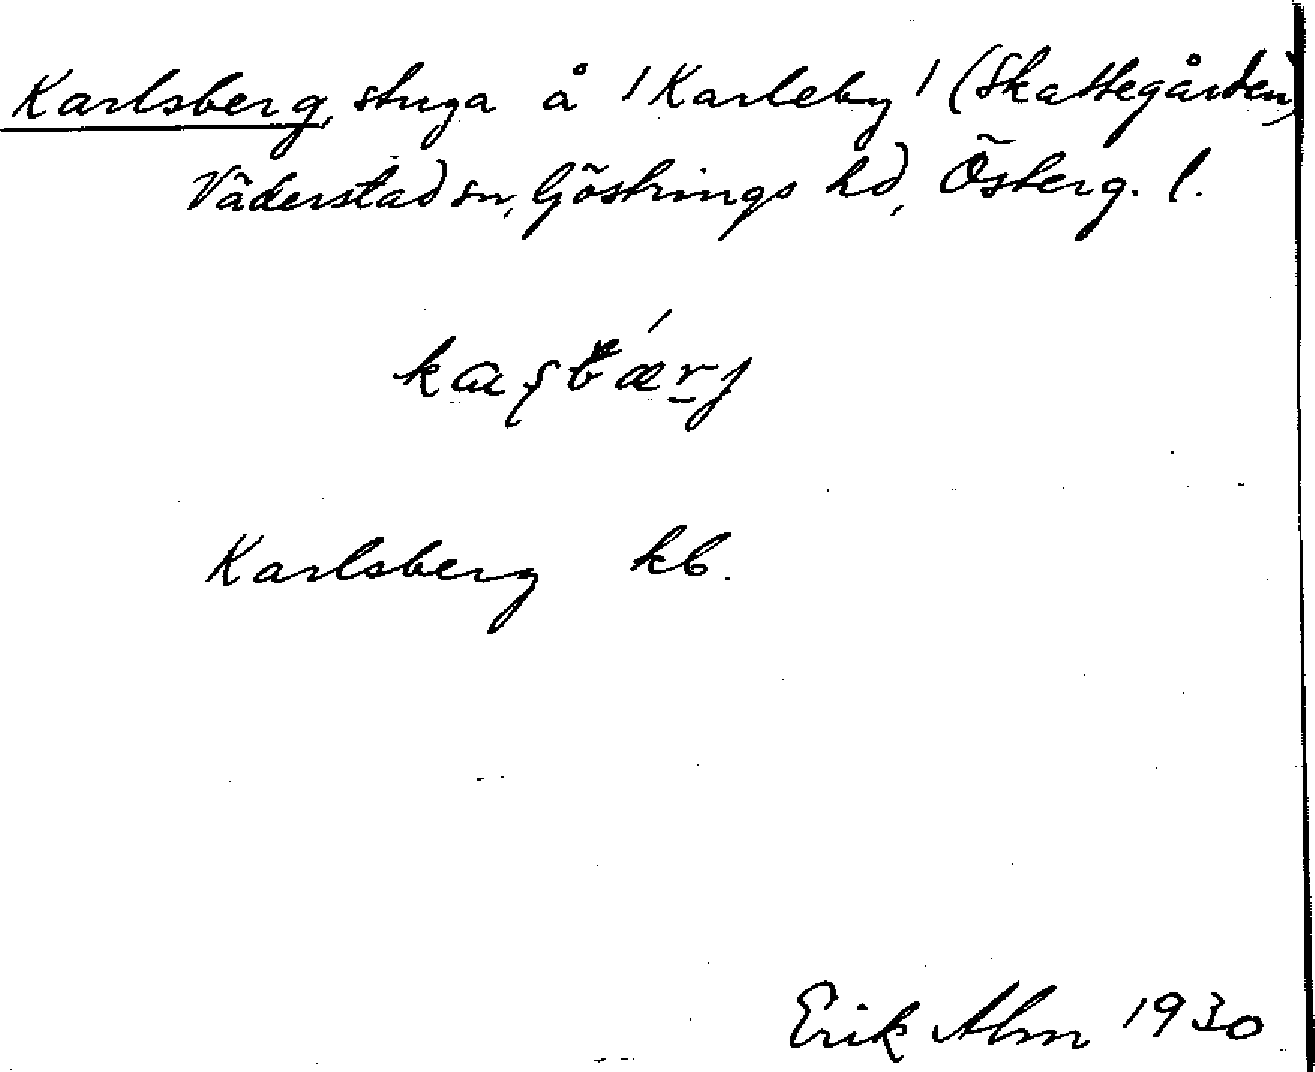 Karlsberg, stuga å / Karleby / (Skattegården)
Väderstad sn, Göstrings hd, Österg. l.
kaʂbǽrj
Karlsberg kb.
Erik Alm 1930